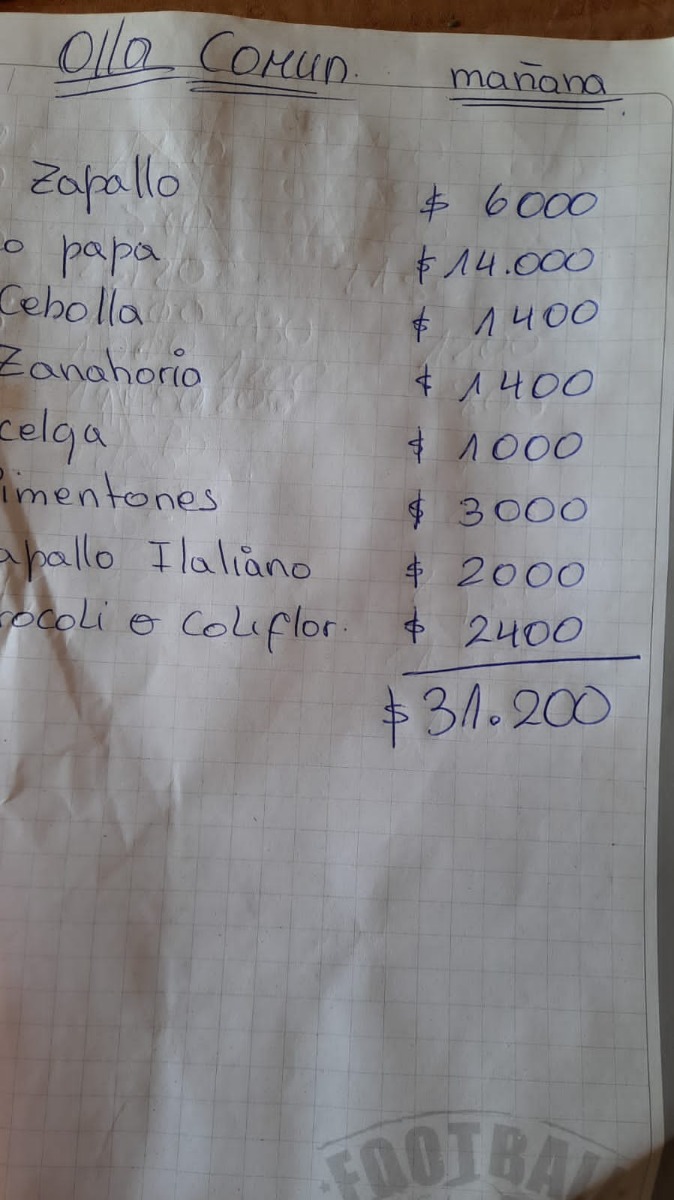 Olla Comun. mañana
Zapallo $ 6000
o papa $ 14.000
Cebolla $ 1400
Zanahoria $ 1400
celga $ 1000
imentones $ 3000
apallo Ilaliano $ 2000
rocoli o Coliflor. $ 2400
$ 31.200
FOOTBAL